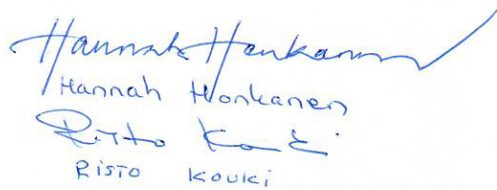 Hannah Honkanen
Hannah Honkanen
Risto Kouki
RISTO KOUKI